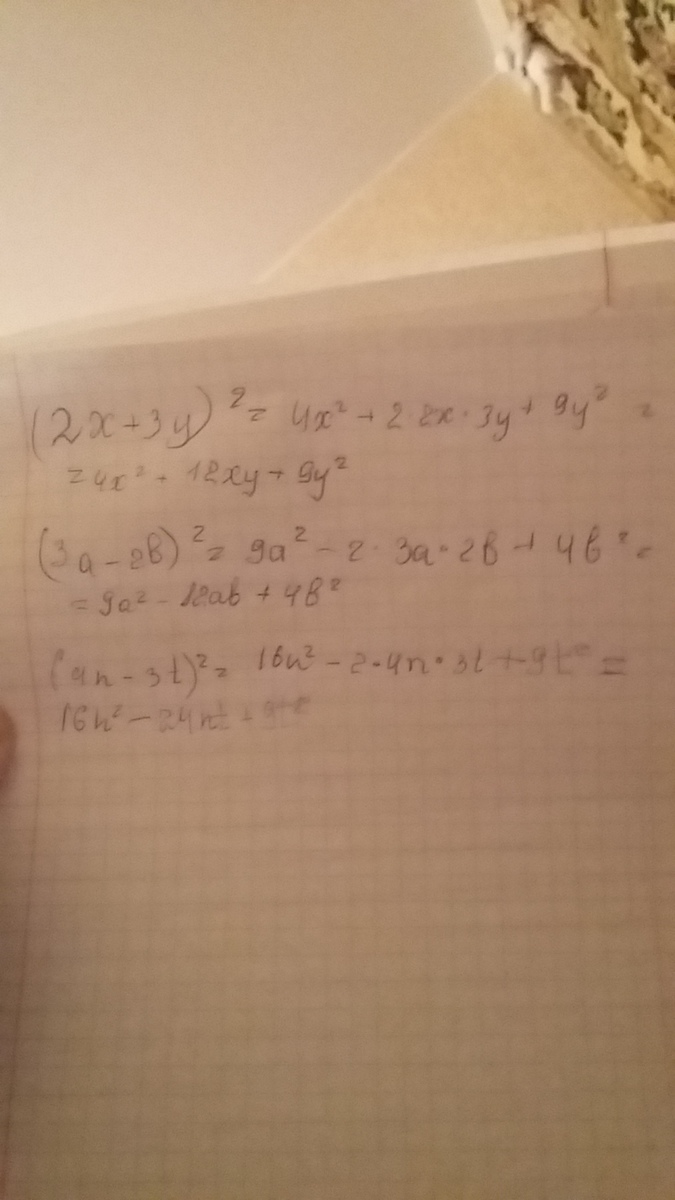 (2x+3y)² = 4x² + 2·2x·3y + 9y² =
= 4x² + 12xy + 9y²
(3a-2b)² = 9a² - 2·3a·2b + 4b² =
= 9a² - 12ab + 4b²
(4n-3t)² = 16n² - 2·4n·3t + 9t² =
16n² - 24nt + 9t²